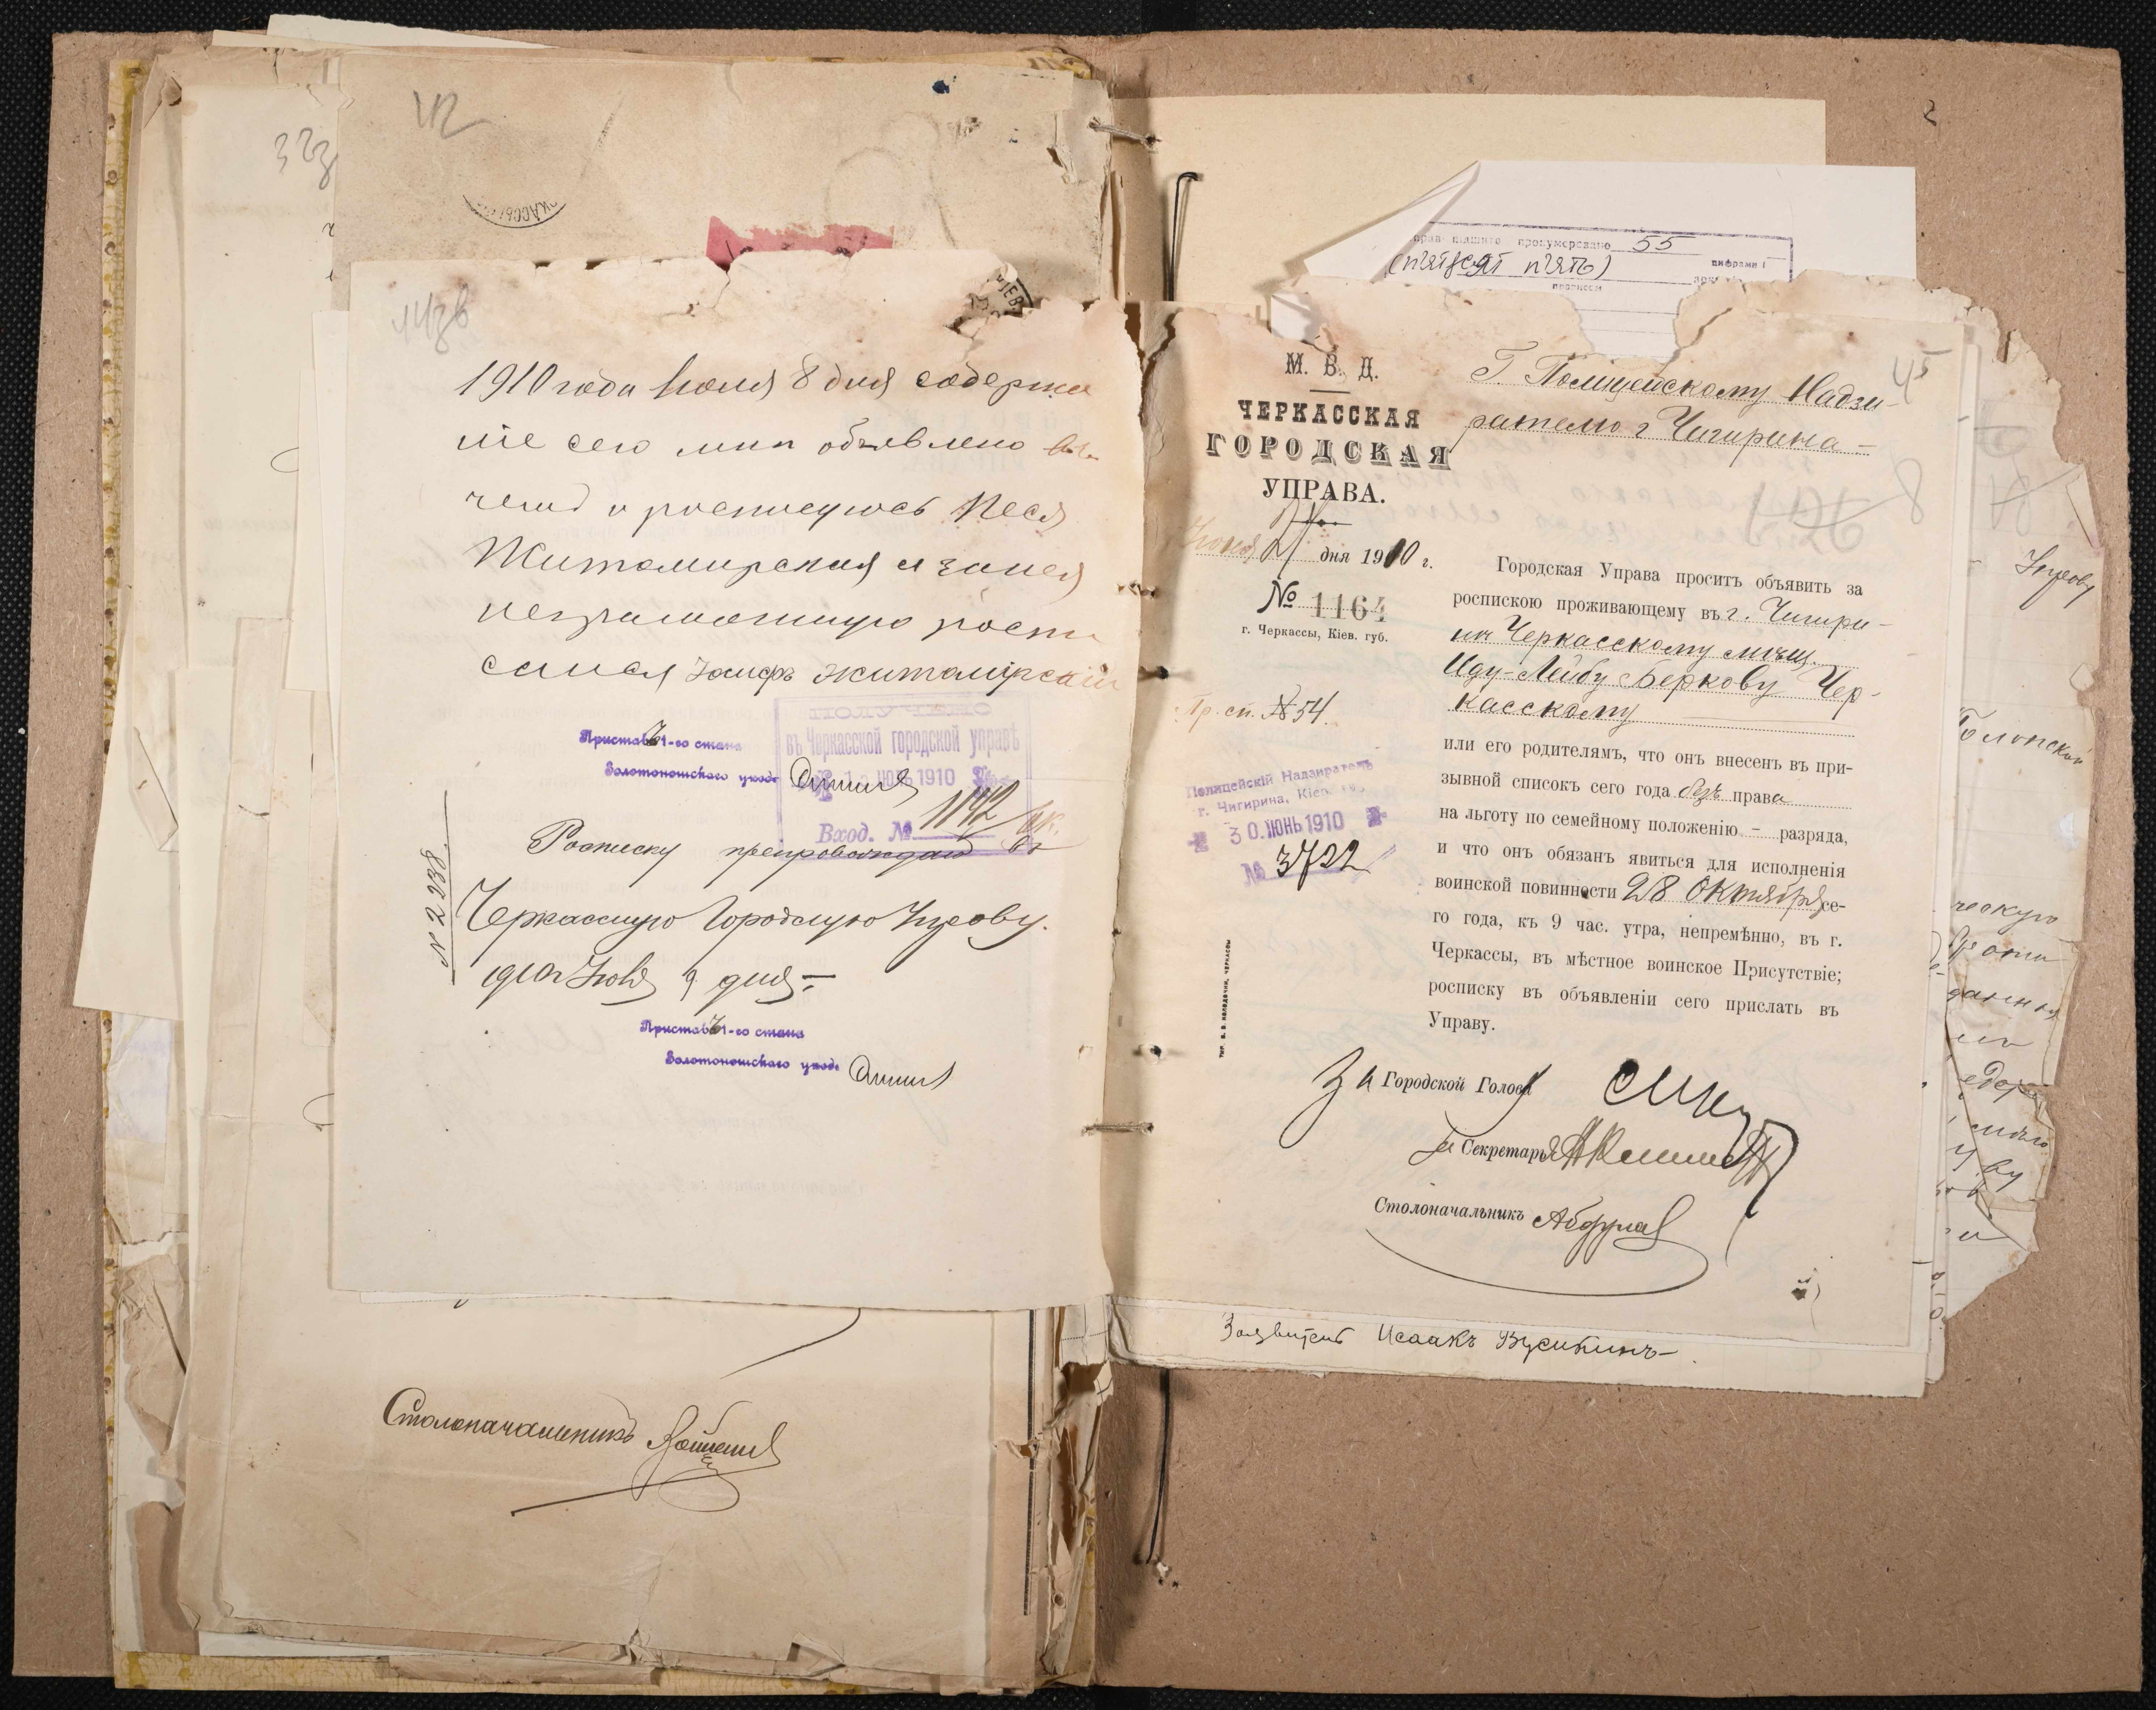 42
323
44зв
1910 года Июля 8 дня содержа
ніе сего мнѣ объявлено въ
чемъ и росписуюсь Песя
Житомирская а занея
неграмотную роспи
сался Іосифъ Житомірскій
Приставъ 1-го стана
Золотоношскаго уезда
ПОЛУЧЕНО
въ Черкасской городской управѣ
1 ИЮЛЬ 1910
Вход. № 1142
Росписку препровождаю въ
Черкасскую Городскую Управу.
1910 г Іюля 9 дня
№ 2238.
Приставъ 1-го стана
Золотоношскаго уезда
Столоначальникъ
2
пронумеровано 55
(п'ятдесят п'ять)
цифрами і
прописом
М. В. Д.
ЧЕРКАССКАЯ
ГОРОДСКАЯ
УПРАВА.
Іюня 21 дня 1910 г.
№ 1164
г. Черкассы, Кіев. губ.
Пр. сп. № 54.
Полицейскій Надзиратель
г. Чигирина, Кіев. губ.
30. ИЮНЬ 1910
№ 3722
тип. в. в. колодочки, черкассы
45
Г. Поліцейскому Надзи-
рателю г Чигирина
Городская Управа проситъ объявить за
роспискою проживающему въ г. Чигири-
нѣ Черкасскому мѣщ.
Иду-Лейбу Беркову Чер-
касскому
или его родителямъ, что онъ внесенъ въ при-
зывной списокъ сего года безъ права
на льготу по семейному положенію - разряда,
и что онъ обязанъ явиться для исполненія
воинской повинности 28 Октября се-
го года, къ 9 час. утра, непремѣнно, въ г.
Черкассы, въ мѣстное воинское Присутствіе;
росписку въ объявленіи сего прислать въ
Управу.
За Городской Голова
За Секретаря
Столоначальникъ
Заявитель Исаакъ Вусикинъ
Управу